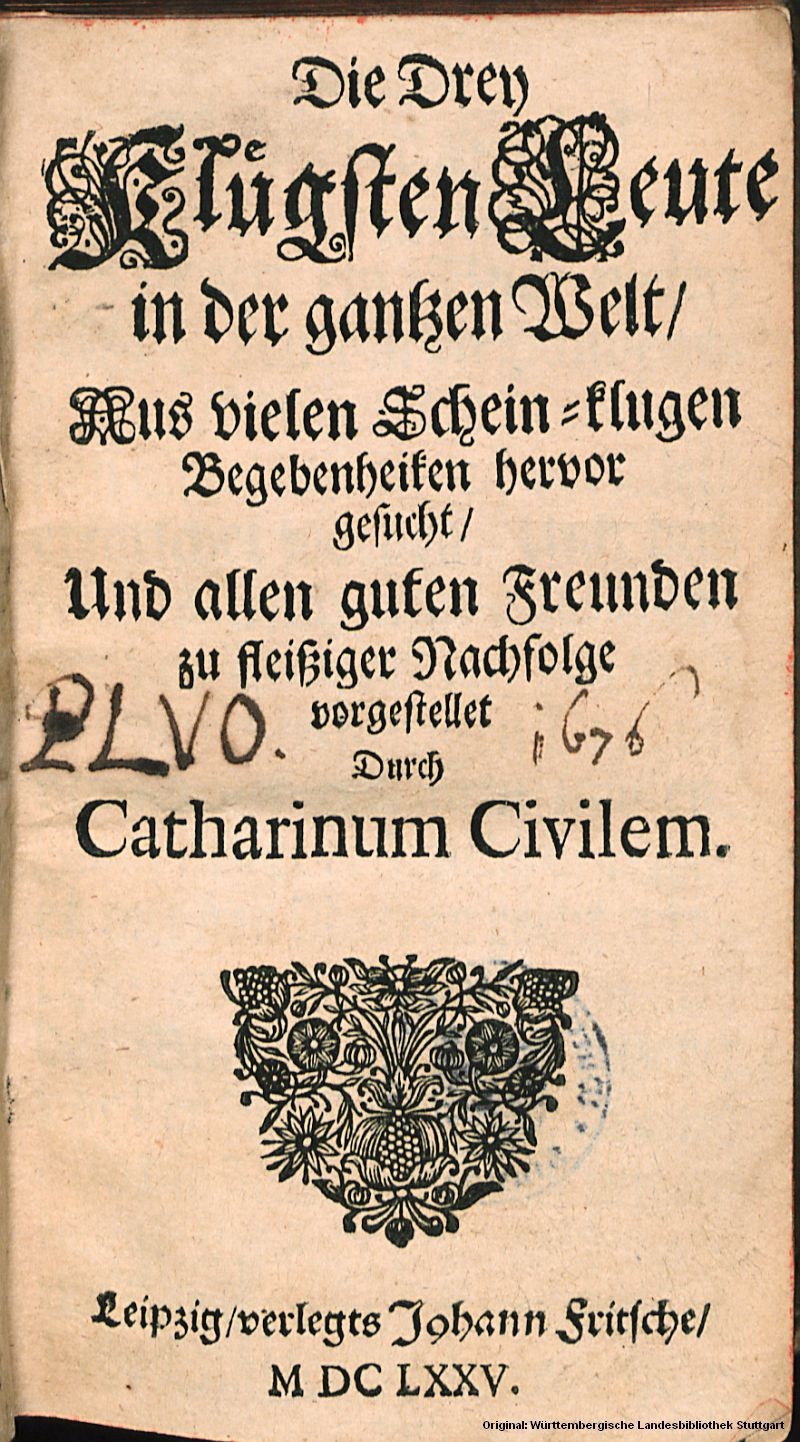 Die Drey
Klůgſten Leute
in der gantzen Welt/
Aus vielen Schein-klugen
Begebenheiten hervor
geſucht/
Und allen guten Freunden
zu fleißiger Nachfolge
vorgeſtellet
PLVO. 1676
Durch
Catharinum Civilem.
Leipzig/verlegts Johann Fritſche/
M DC LXXV.
Original: Württembergische Landesbibliothek Stuttgart